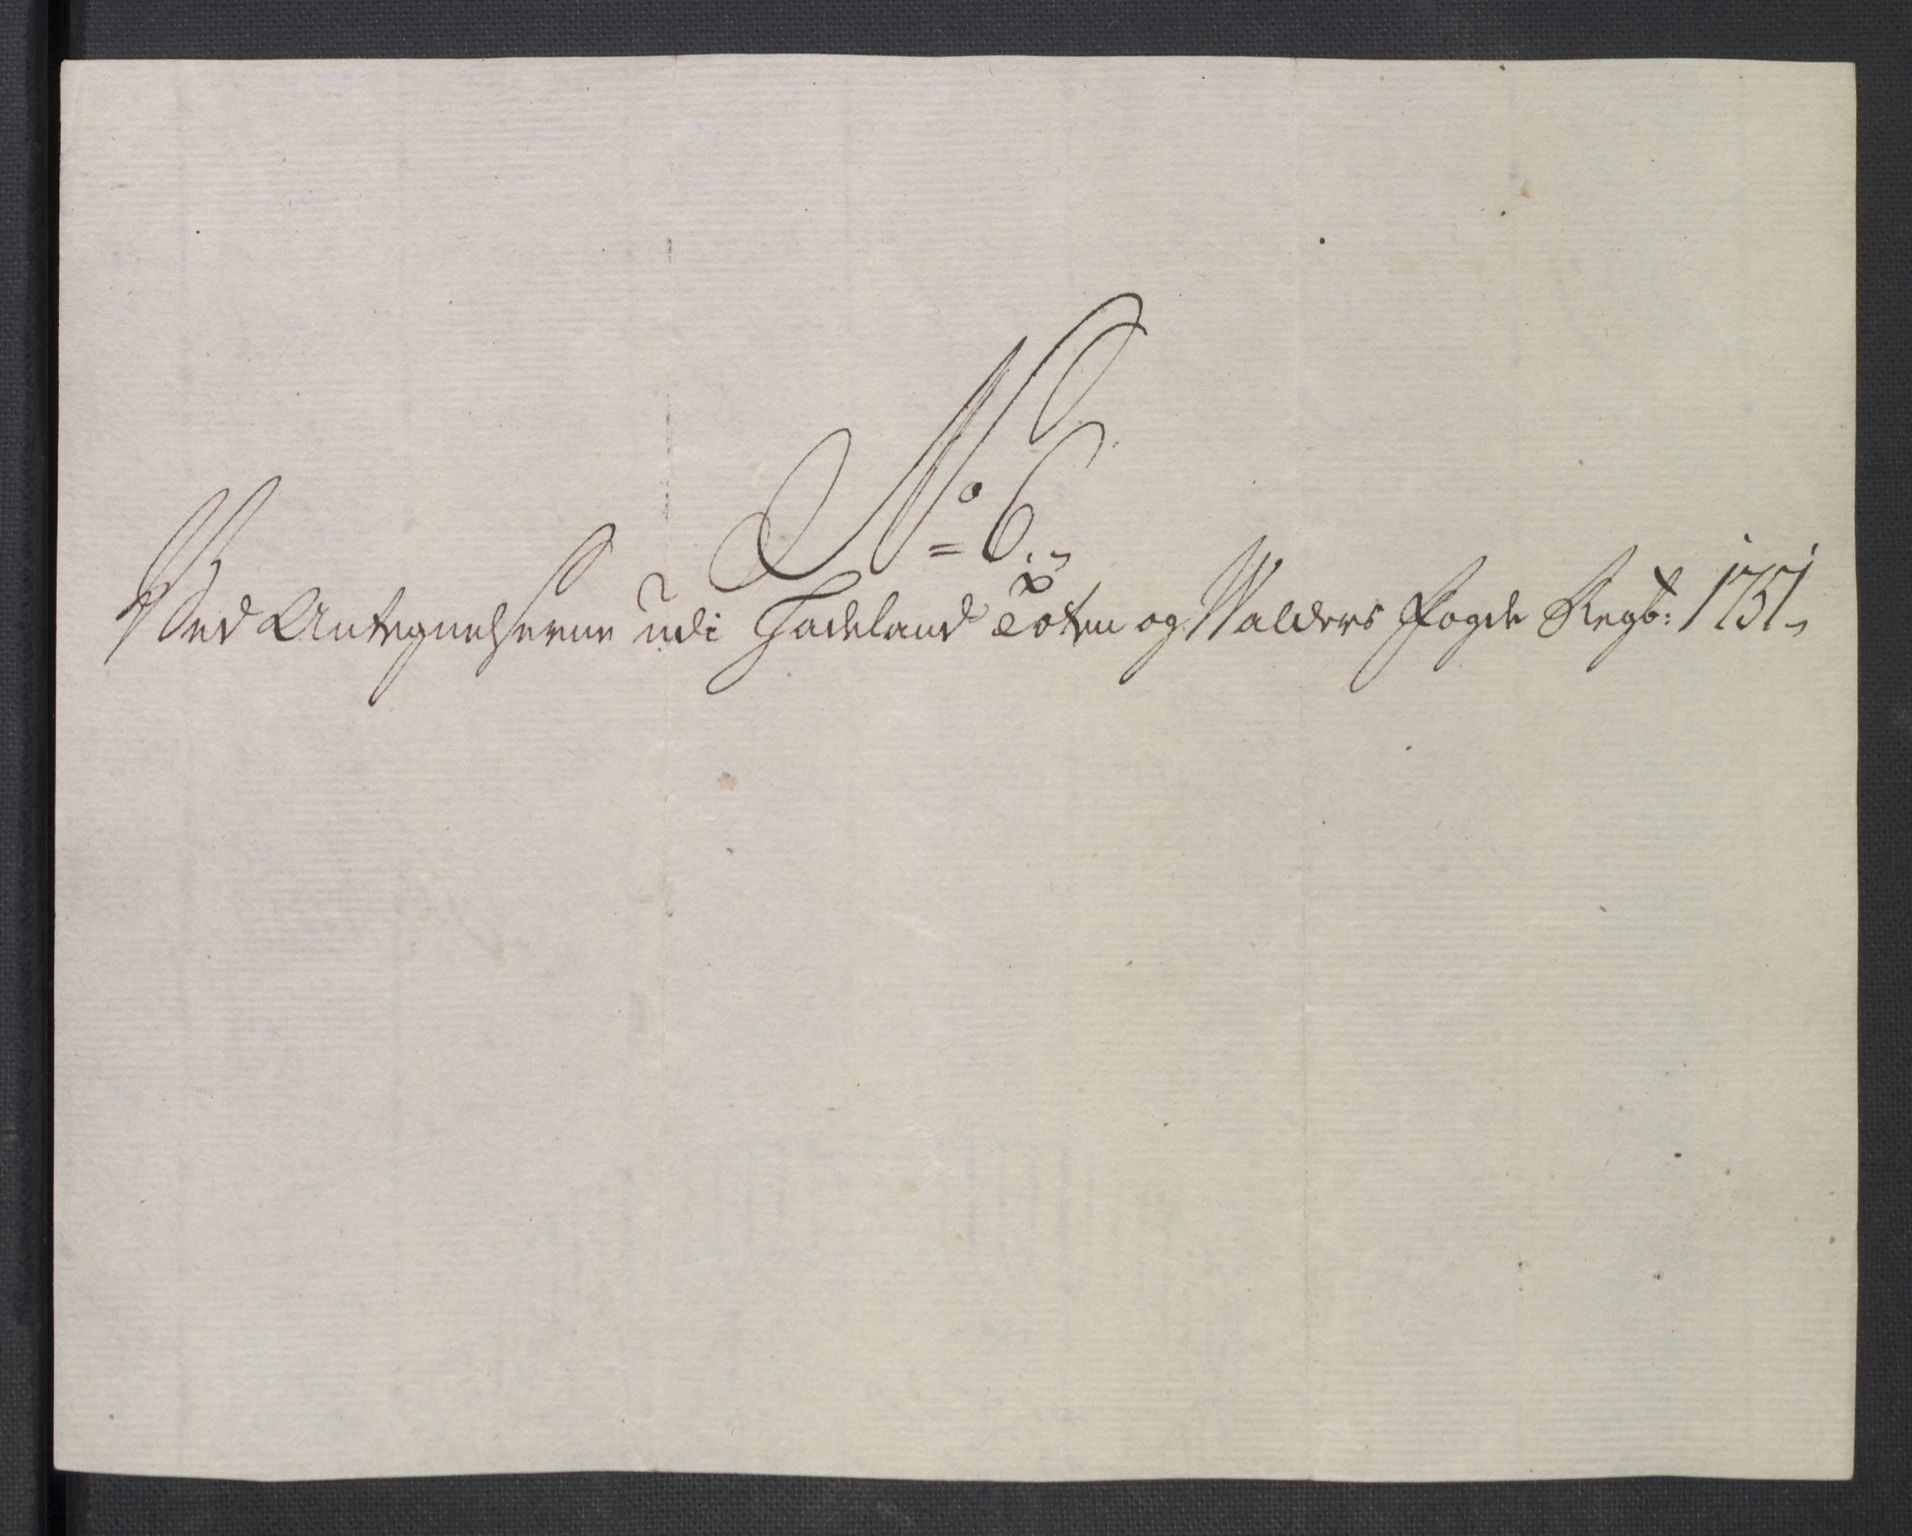 No 6.
Ved Antegnelserne udi Hadeland Toten og Walders Fogde Regsk: 1751